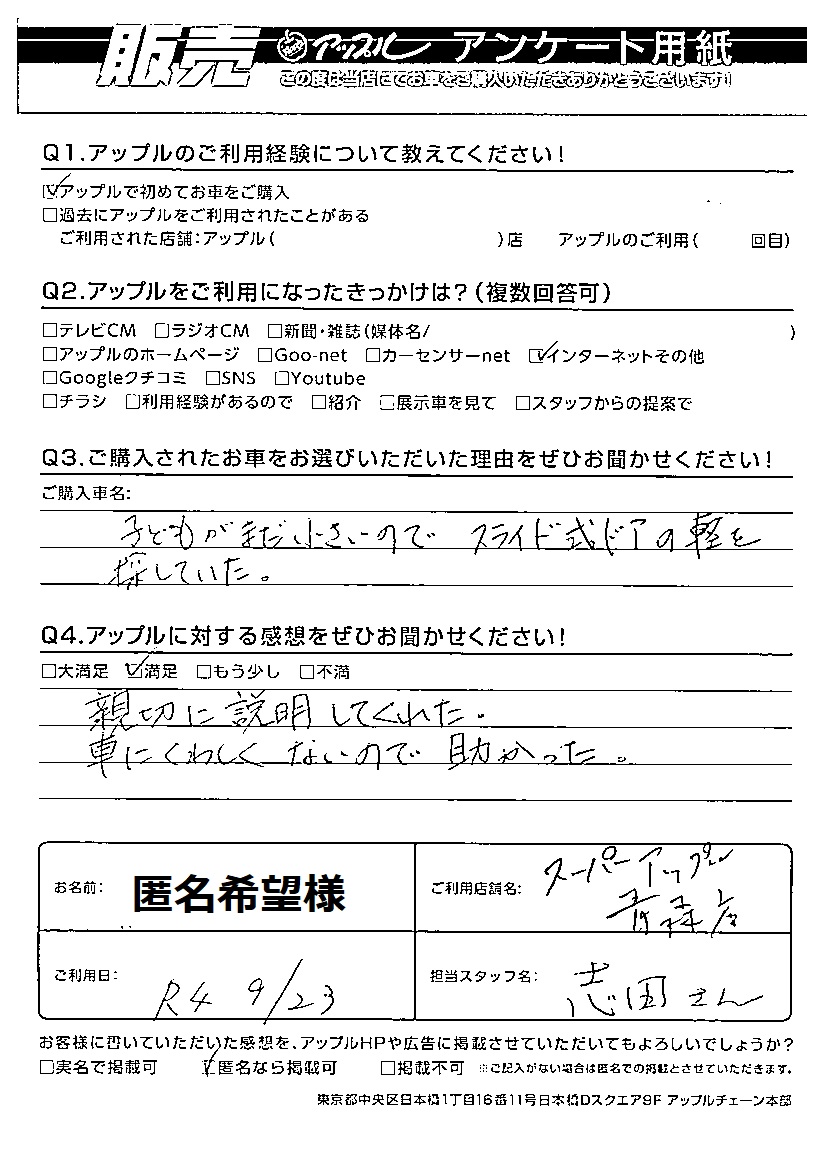 販売 アップル アンケート用紙
この度は当店にてお車をご購入いただきありがとうございます!
Q1.アップルのご利用経験について教えてください!
☑アップルで初めてお車をご購入
□過去にアップルをご利用されたことがある
ご利用された店舗:アップル( )店 アップルのご利用( 回目)
Q2.アップルをご利用になったきっかけは?(複数回答可)
□テレビCM □ラジオCM □新聞・雑誌(媒体名/ )
□アップルのホームページ □Goo-net □カーセンサーnet ☑インターネットその他
□Googleクチコミ □SNS □Youtube
□チラシ □利用経験があるので □紹介 □展示車を見て □スタッフからの提案で
Q3.ご購入されたお車をお選びいただいた理由をぜひお聞かせください!
ご購入車名:
子どもがまだ小さいので スライド式ドアの軽を
探していた。
Q4.アップルに対する感想をぜひお聞かせください!
□大満足 ☑満足 □もう少し □不満
親切に説明してくれた。
車にくわしくないので助かった。
お名前: 匿名希望様
ご利用店舗名: スーパーアップル
青森店
ご利用日: R4 9/23
担当スタッフ名: 志田さん
お客様に書いていただいた感想を、アップルHPや広告に掲載させていただいてもよろしいでしょうか?
□実名で掲載可 ☑匿名なら掲載可 □掲載不可 ※ご記入がない場合は匿名での掲載とさせていただきます。
東京都中央区日本橋1丁目16番11号日本橋Dスクエア9F アップルチェーン本部